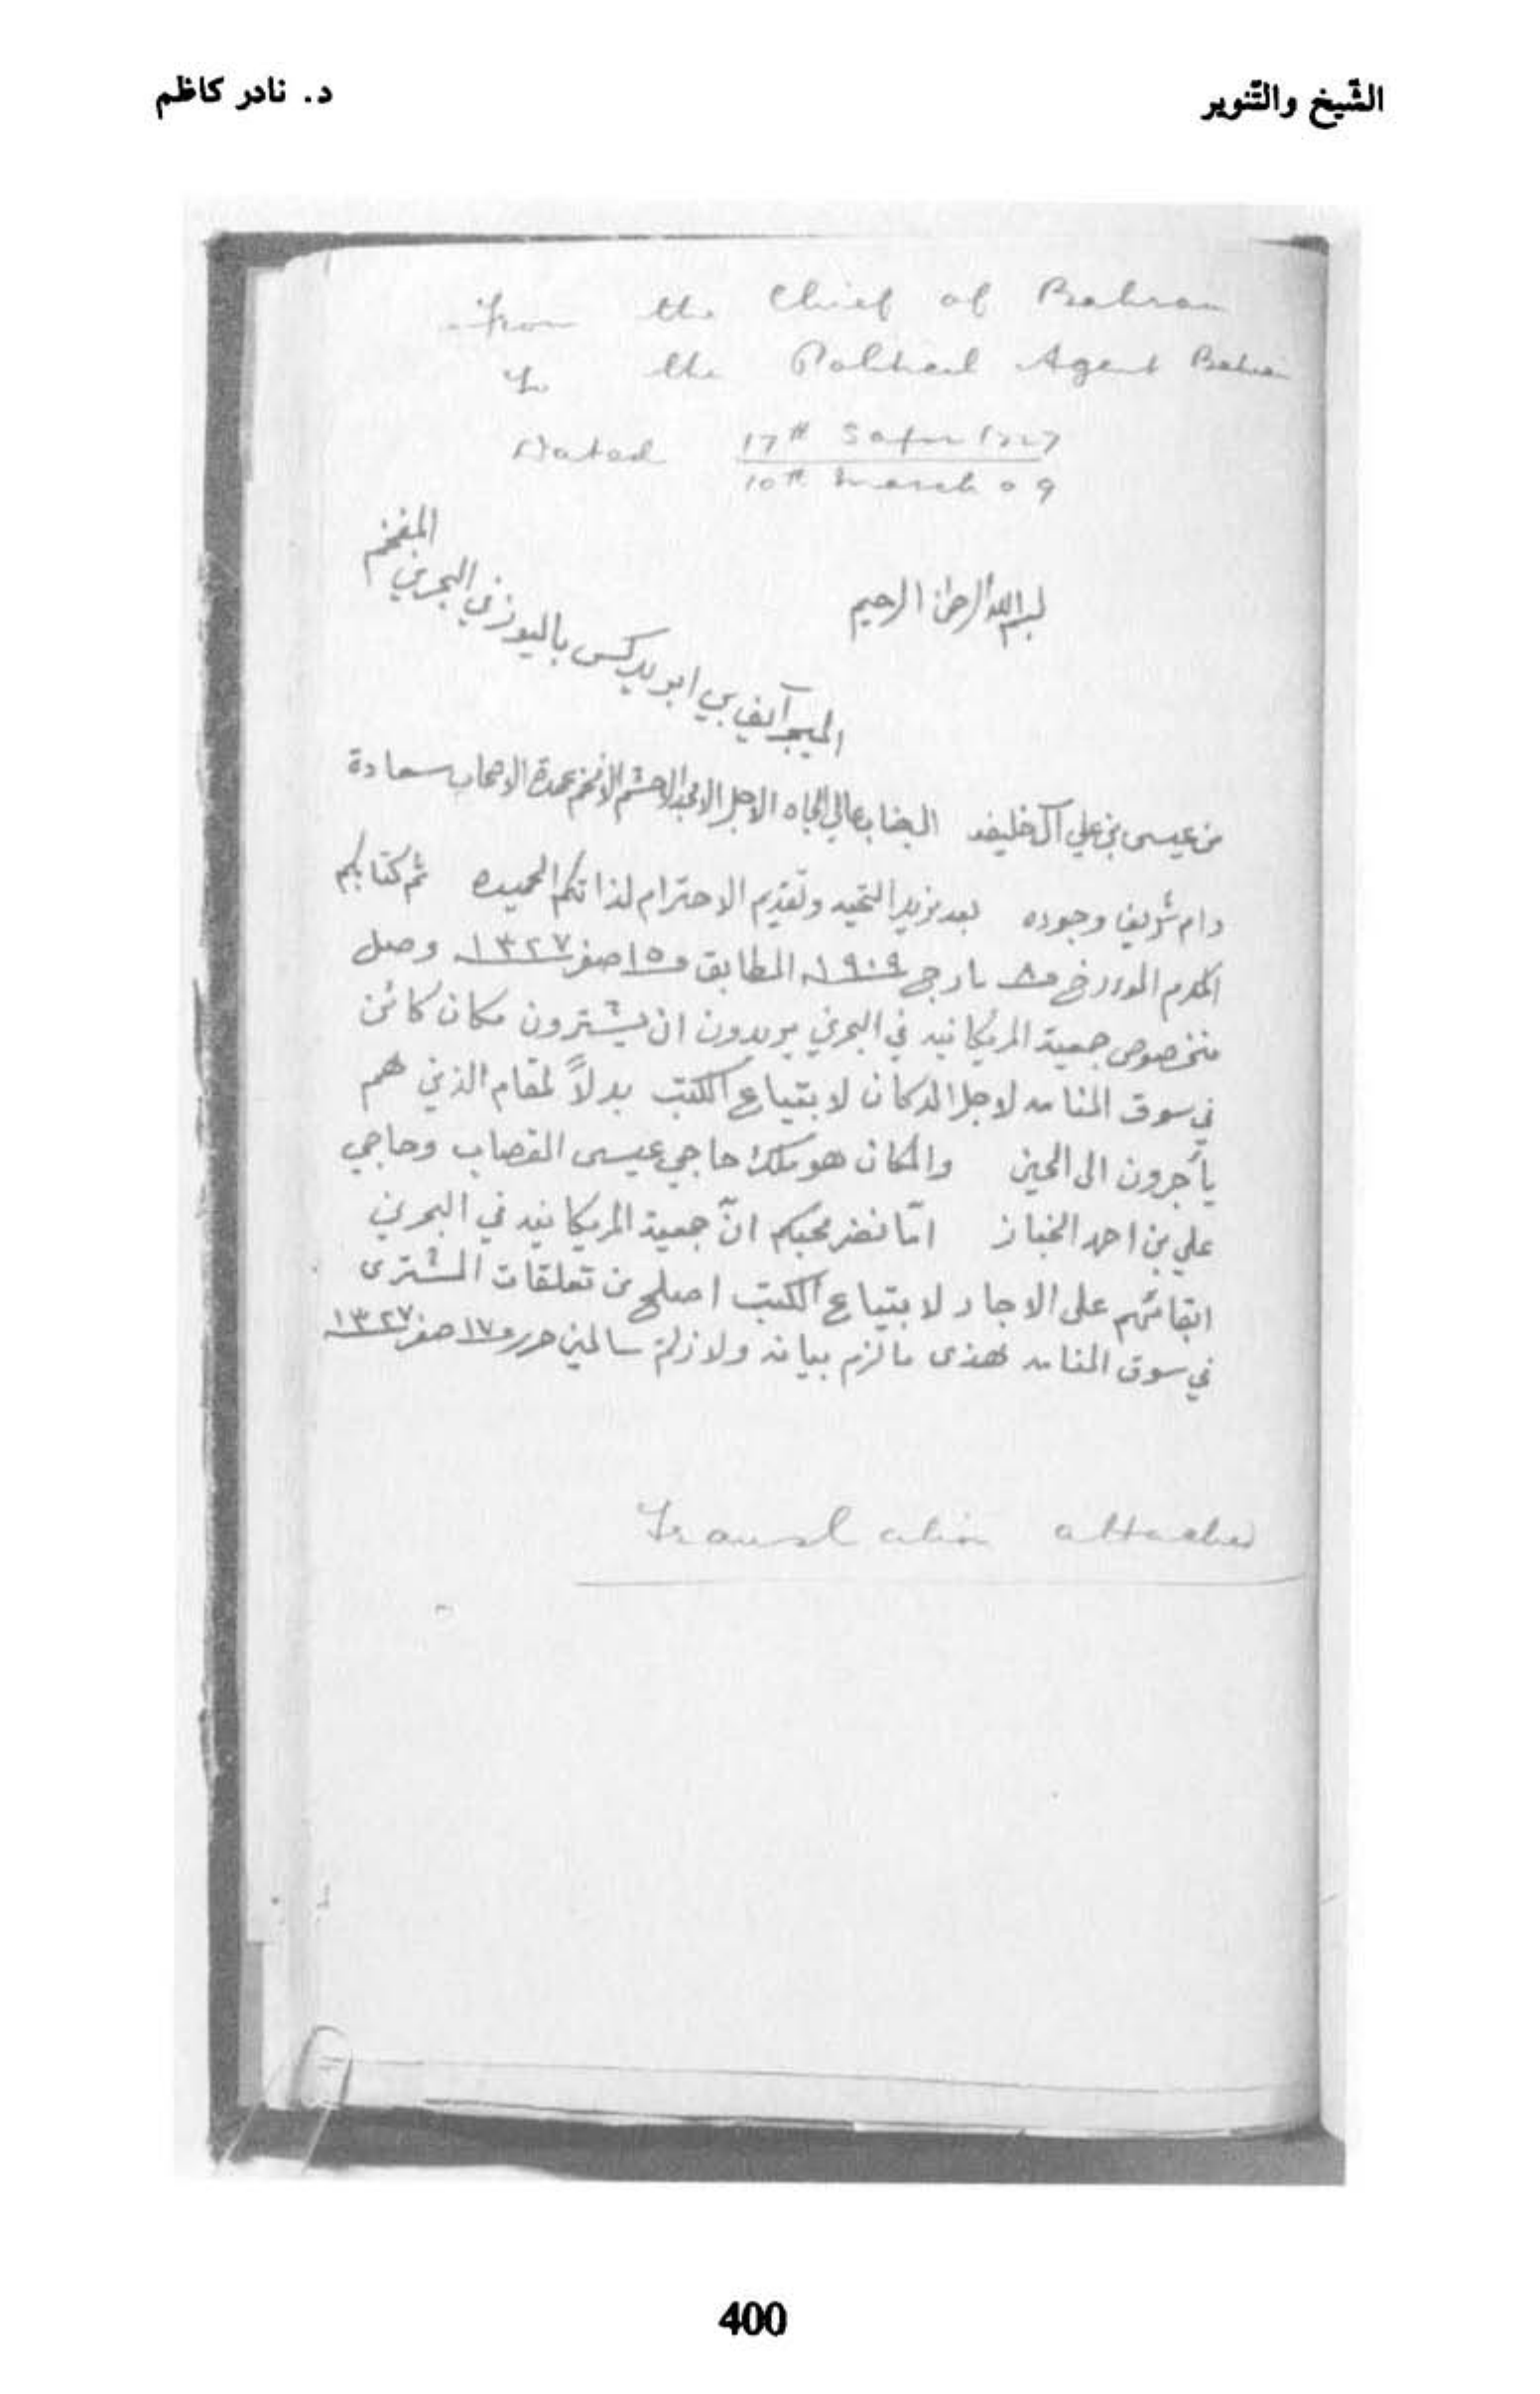 الشّيخ والتّنوير
د. نادر كاظم
From the Chief of Bahrain
To the Political Agent Bahrein
Dated 17th Safar 1327
10th March 09
بسم الله الرحمن الرحيم
الميجر آيف بي ابر يدكس باليوز في البحرين المفخم
من عيسى بن علي آل خليفه الى جناب عالي الجاه الاجل الامجد الاحشم الافخم عمدة الاصحاب سعادة
دام شريف وجوده بعد مزيد التحيه وتقديم الاحترام لذاتكم الحميده ثم كتابكم
المكرم المورخ م٨ مارج ١٩٠٩ المطابق م١٥ صفر ١٣٢٧ وصل
منخصوص جمعية المريكانيه في البحرين يريدون ان يشترون مكان كائن
في سوق المنامه لاجل الدكان لابتياع الكتب بدلاً لمقام الذين هم
يأجرون الى الحين والمكان هو ملك حاجي عيسى القصاب وحاجي
علي بن احمد الخباز امّا نضر محبكم انّ جمعية المريكانيه في البحرين
ابقائهم على الاجار لابتياع الكتب اصلح من تعلقات المشترى
في سوق المنامه فهذى مالزم بيانه ولازلتم سالمين حرر م١٧ صفر ١٣٢٧
Translation attached
400